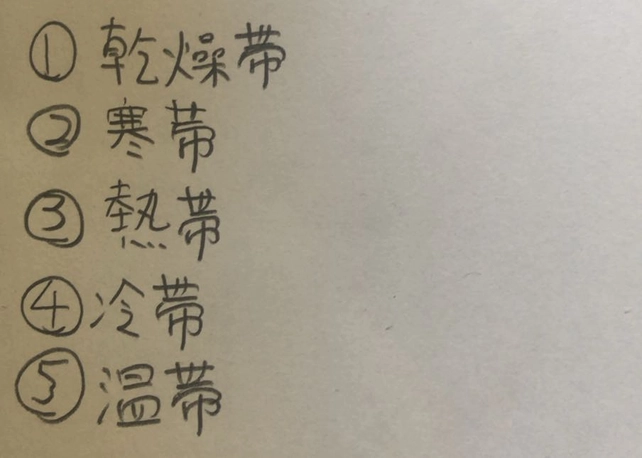 ① 乾燥帯
② 寒帯
③ 熱帯
④ 冷帯
⑤ 温帯